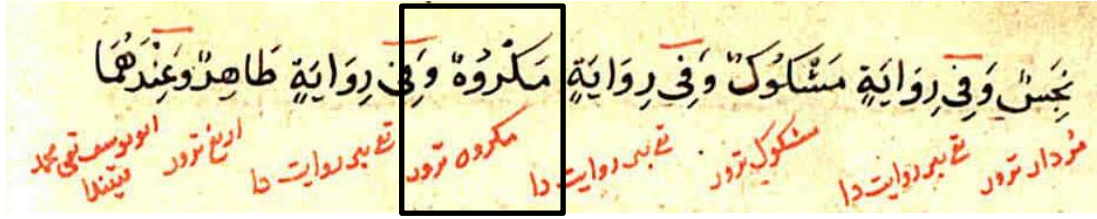 نَجِسٌ وَفِى رِوَايَةٍ مَشْكُوكٌ وَفِى رِوَايَةٍ مَكْرُوهٌ وَفِى رِوَايَةٍ طَاهِرٌ وَعِنْدَهُمَا
مردار ترور تقى بير روايت دا مشكوك ترور تقى بير روايت دا مكروه ترور تقى بير روايت دا اريغ ترور ابو يوسف محمد